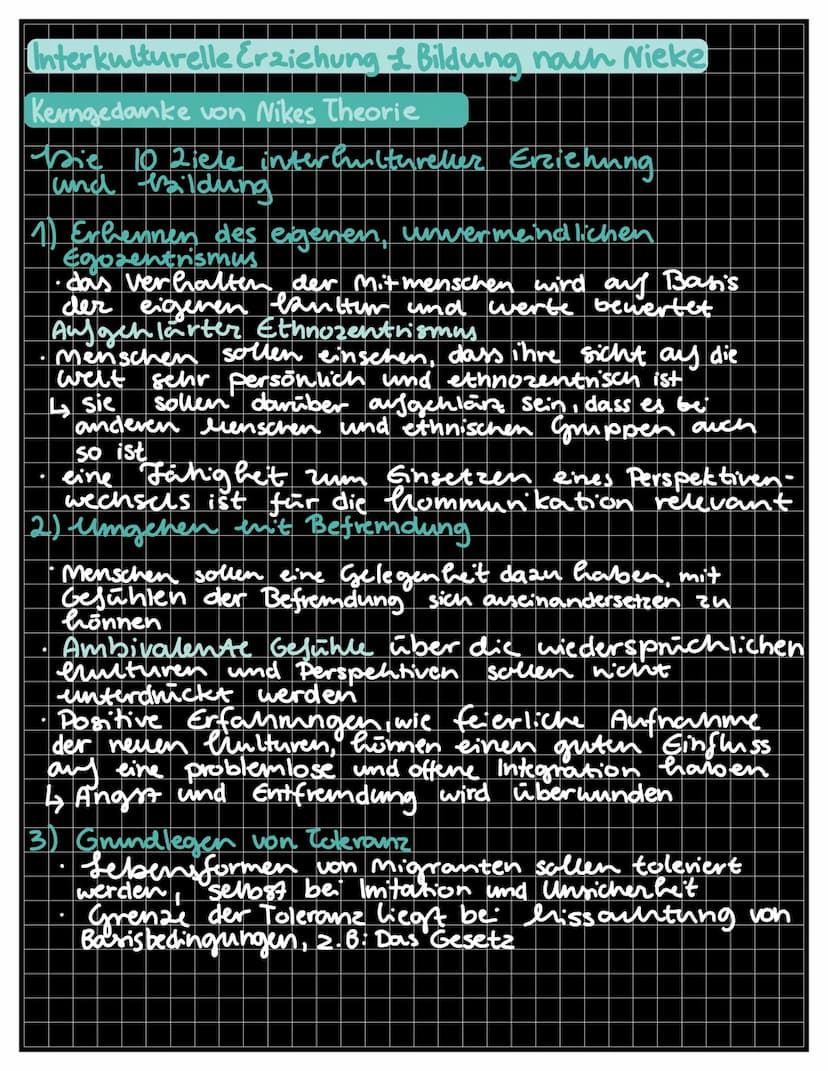 Interkulturelle Erziehung & Bildung nach Nieke
Kerngedanke von Nikes Theorie
Die 10 Ziele interkultureller Erziehung
und Bildung
1) Erkennen des eigenen, unvermeindlichen
Egozentrismus
· das Verhalten der Mitmenschen wird auf Basis
der eigenen Kultur und werte bewertet
Aufgeklärter Ethnozentrismus
· Menschen sollen einsehen, dass ihre Sicht auf die
Welt sehr persönlich und ethnozentrisch ist
↳ sie sollen darüber aufgeklärt sein, dass es bei
anderen Menschen und ethnischen Gruppen auch
so ist
· eine Fähigkeit zum Einsetzen eines Perspektiven-
wechsels ist für die Kommunikation relevant
2.) Umgehen mit Befremdung
· Menschen sollen eine Gelegenheit dazu haben, mit
Gefühlen der Befremdung sich auseinandersetzen zu
können
· Ambivalente Gefühle über die wiedersprüchlichen
Kulturen und Perspektiven sollen nicht
unterdrückt werden
· Positive Erfahrungen, wie feierliche Aufnahme
der neuen Kulturen, können einen guten Einfluss
auf eine problemlose und offene Integration haben
↳ Angst und Entfremdung wird überwunden
3) Grundlegen von Toleranz
· Lebensformen von Migranten sollen toleriert
werden, selbst bei Imitation und Unsicherheit
· Grenze der Toleranz liegt bei Missachtung von
Basisbedingungen, z.B: Das Gesetz